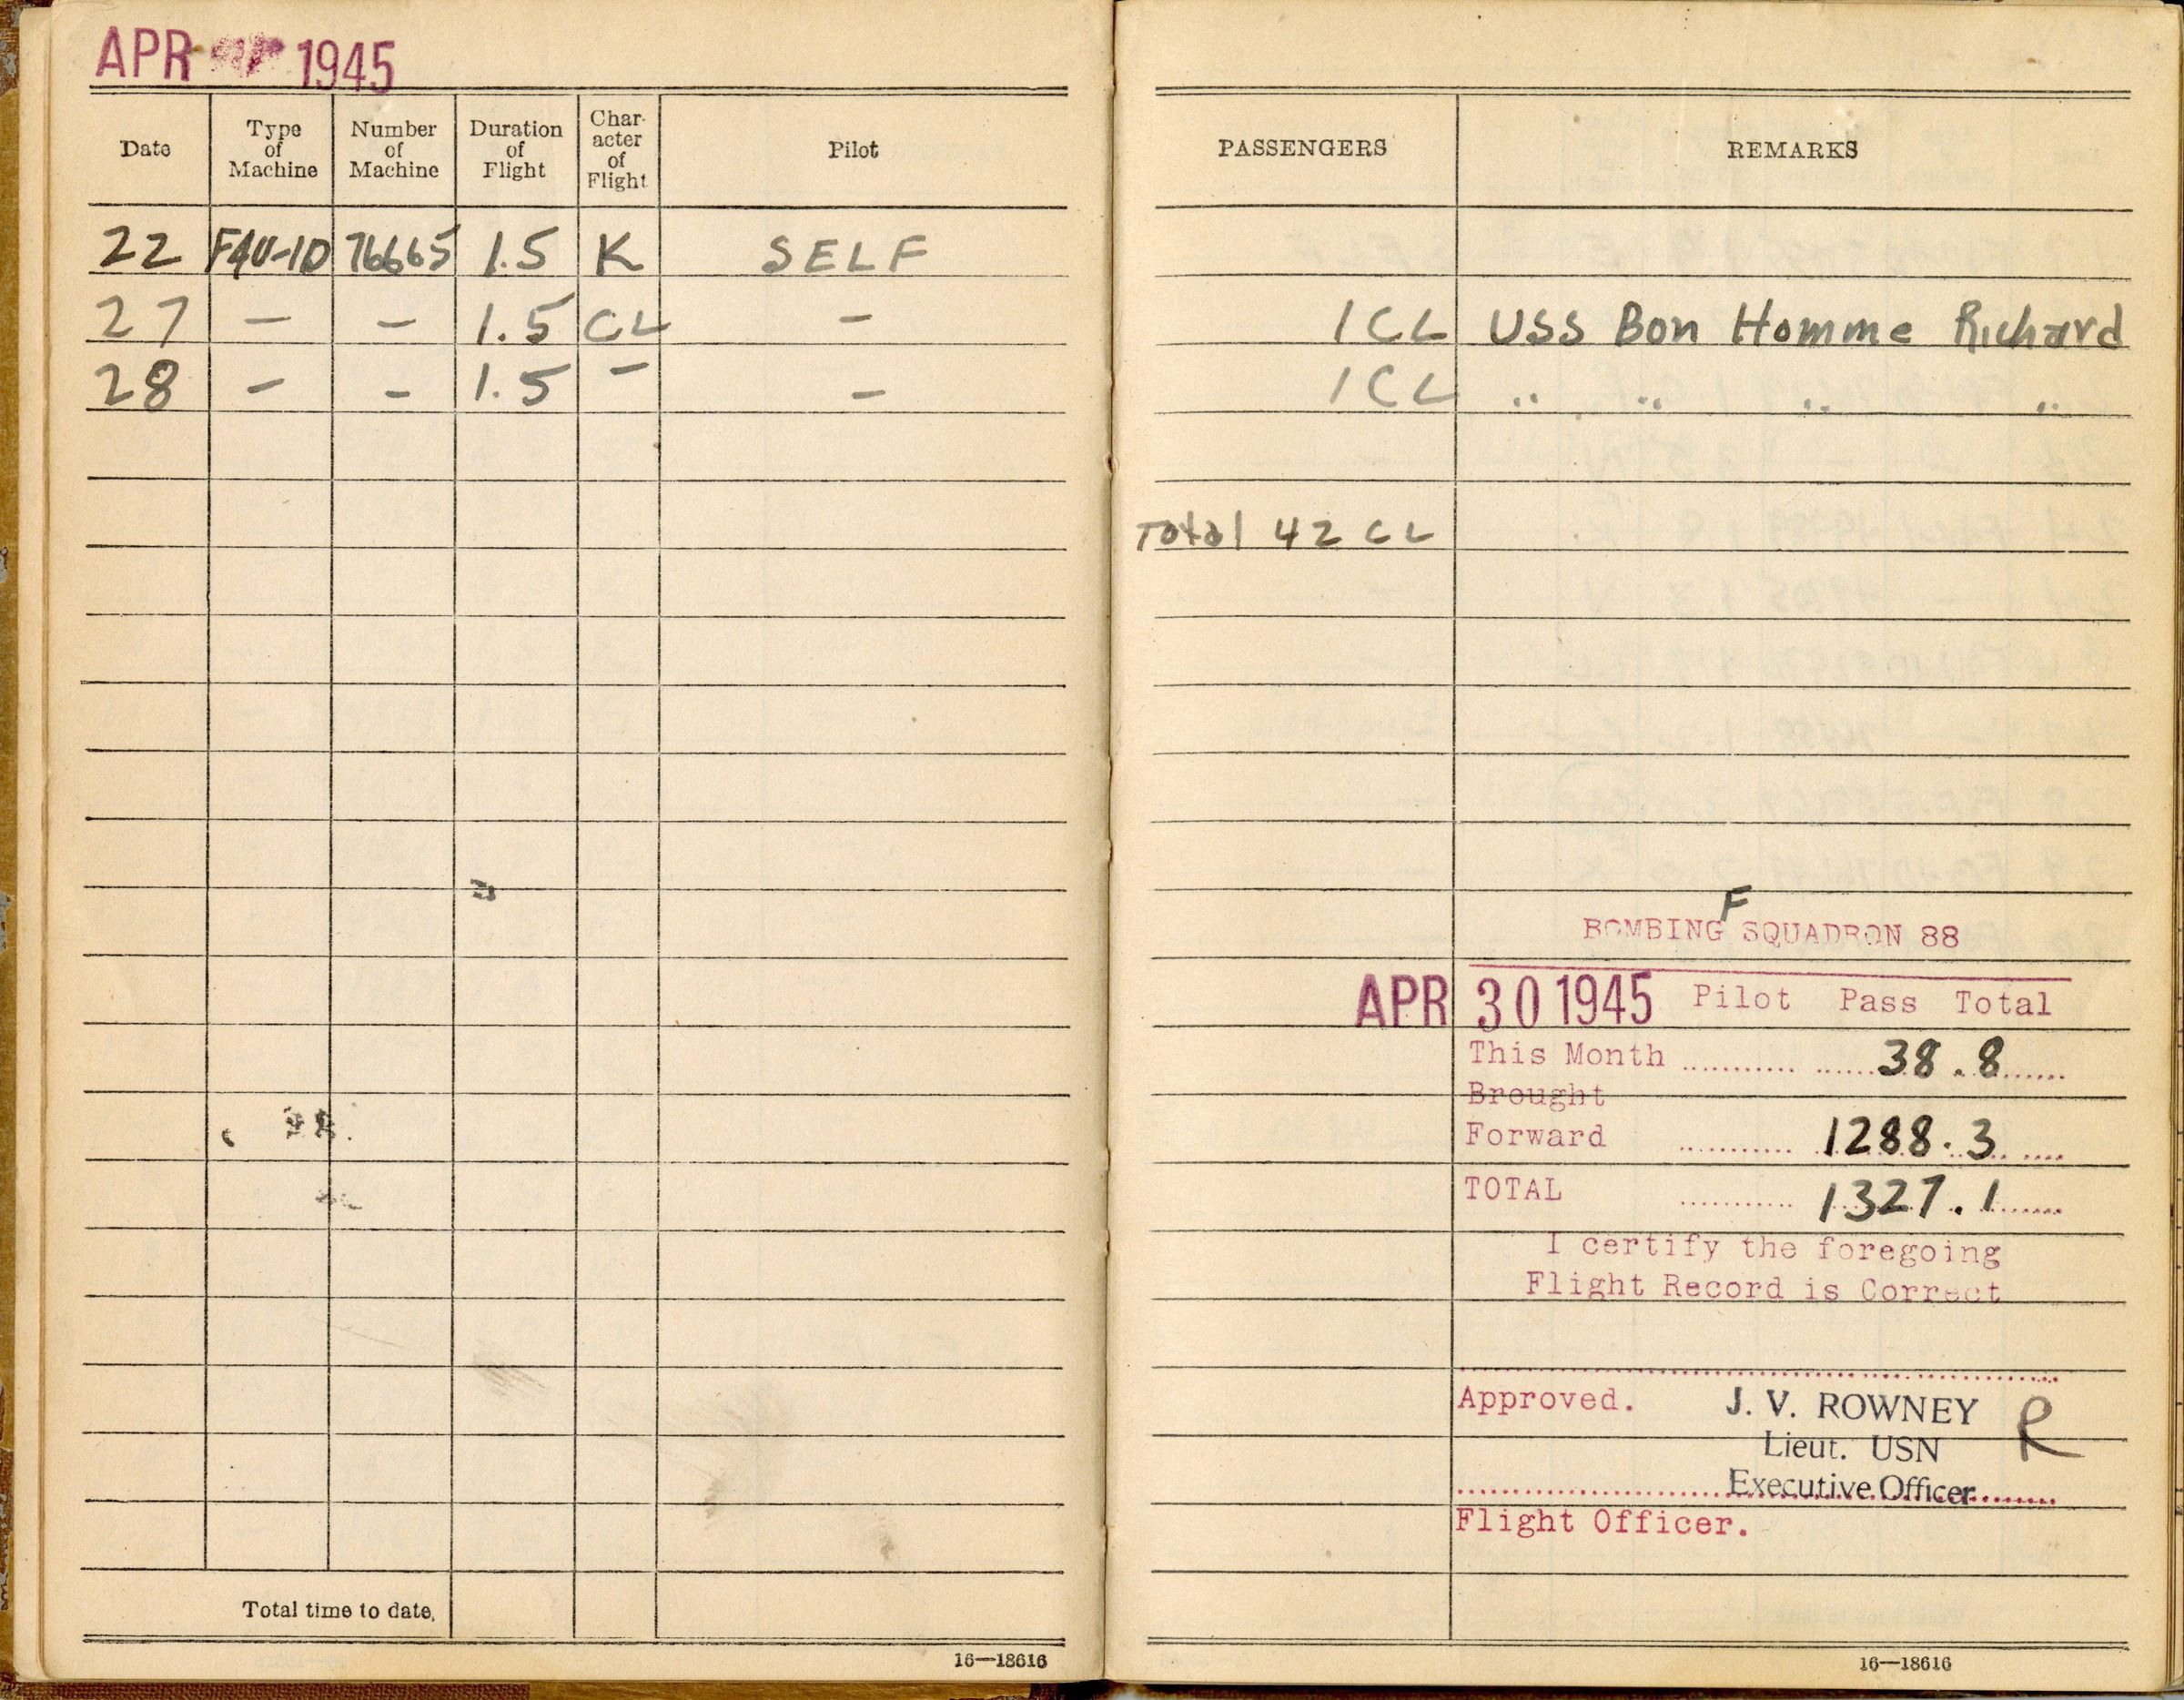 APR 1945
Date Type of Machine Number of Machine Duration of Flight Char-acter of Flight Pilot PASSENGERS REMARKS
22 F4U-1D 76665 1.5 K SELF
27 — — 1.5 CL — 1 CL USS Bon Homme Richard
28 — — 1.5 — — 1 CL " " " "
Total 42 CL
F
BOMBING SQUADRON 88
APR 30 1945 Pilot Pass Total
This Month 38.8
Brought
Forward 1288.3
TOTAL 1327.1
I certify the foregoing
Flight Record is Correct
Approved. J. V. ROWNEY R
Lieut. USN
Executive Officer
Flight Officer.
Total time to date,
16—18616 16—18616